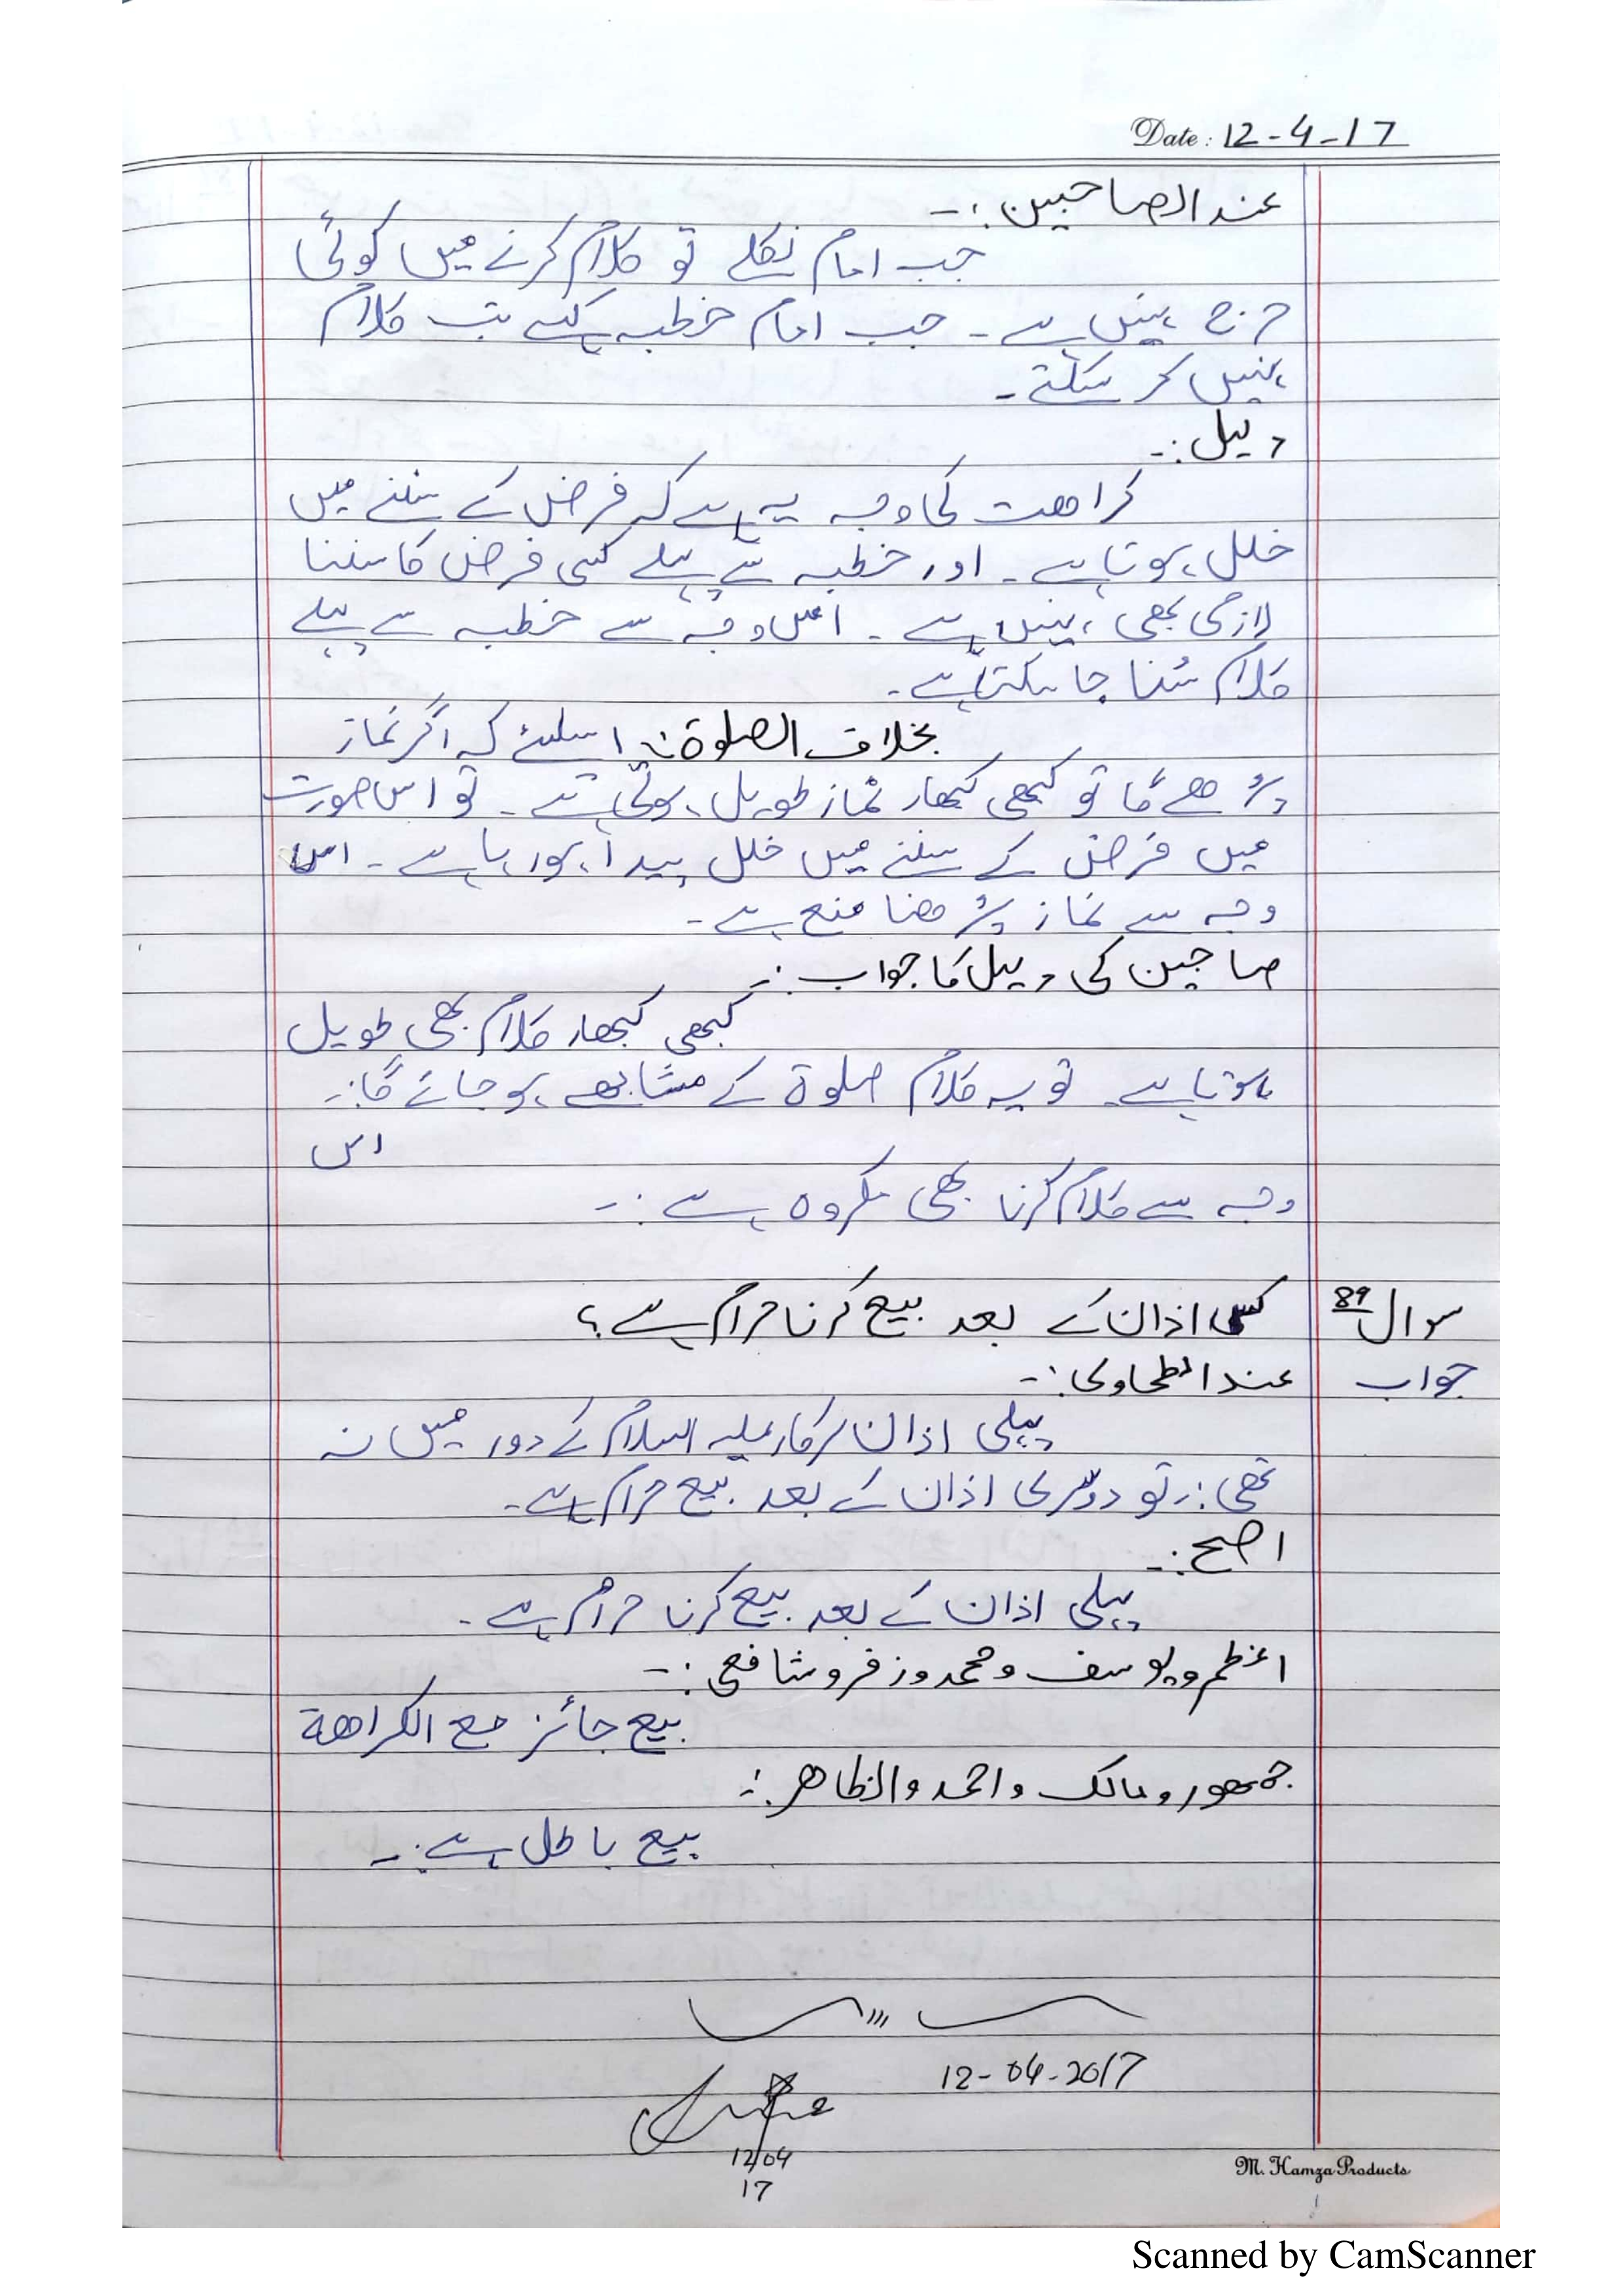 Date : 12-4-17
عند الصاحبین :-
جب امام نکلے تو کلام کرنے میں کوئی
حرج نہیں ہے ۔ جب امام خطبہ کہے تب کلام
نہیں کر سکتے ۔
دلیل :-
کراھت کی وجہ یہ ہے کہ فرض کے سننے میں
خلل ہوتا ہے ۔ اور خطبہ سے پہلے کسی فرض کا سننا
لازمی بھی نہیں ہے ۔ اس وجہ سے خطبہ سے پہلے
کلام سُنا جا سکتا ہے ۔
بخلاف الصلوۃ :- اسلئے کہ اگر نماز
پڑھے گا تو کبھی کبھار نماز طویل ہوتی ہے ۔ تو اس صورت
میں فرض کے سننے میں خلل پیدا ہو رہا ہے ۔ اس
وجہ سے نماز پڑھنا منع ہے ۔
صاحبین کی دلیل کا جواب :-
کبھی کبھار کلام بھی طویل
ہوتا ہے ۔ تو یہ کلام صلوۃ کے مشابھے ہو جائے گا :-
اس
وجہ سے کلام کرنا بھی مکروہ ہے :-
سوال 89 کس اذان کے بعد بیع کرنا حرام ہے ؟
جواب عند الطحاوی :-
پہلی اذان سرکار علیہ السلام کے دور میں نہ
تھی :- تو دوسری اذان کے بعد بیع حرام ہے ۔
اصح :-
پہلی اذان کے بعد بیع کرنا حرام ہے ۔
اعظم و یوسف و محمد و زفر و شافعی :-
بیع جائز مع الکراھة
جمھور و مالک و احمد والظاھر :-
بیع باطل ہے :-
12-04-2017
12/04
17
M. Hamza Products
Scanned by CamScanner